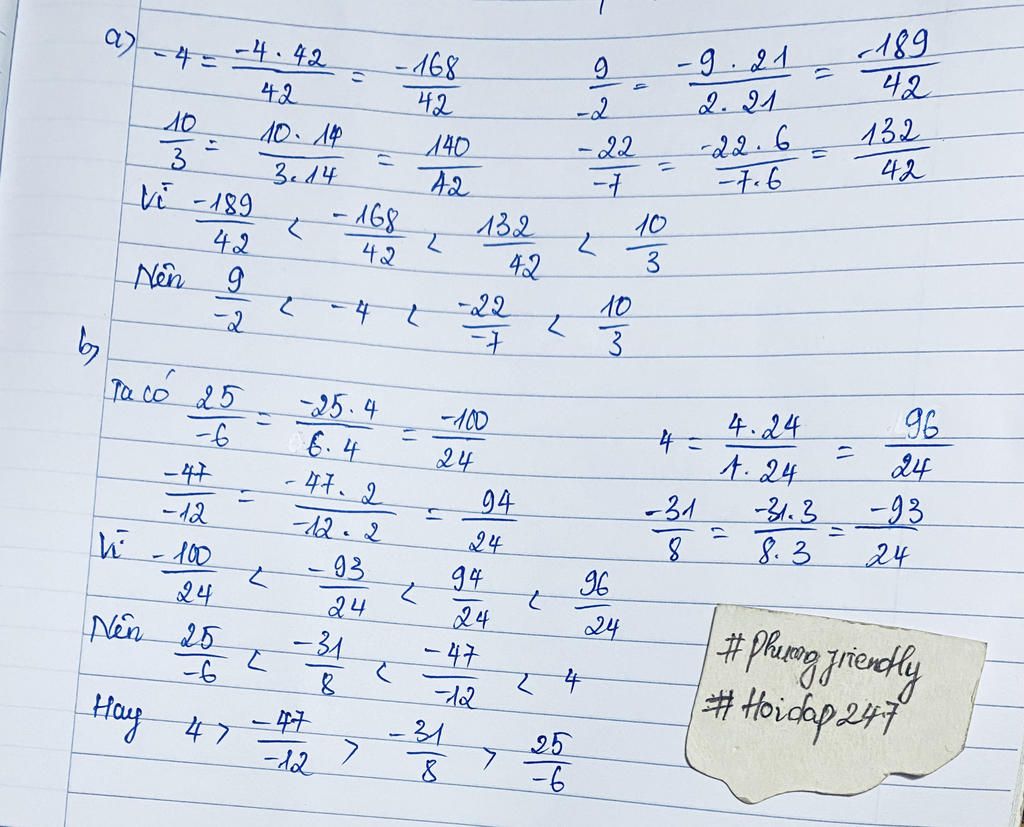 a) -4 = \frac{-4 \cdot 42}{42} = \frac{-168}{42} \quad \frac{9}{-2} = \frac{-9 \cdot 21}{2 \cdot 21} = \frac{-189}{42}
\frac{10}{3} = \frac{10 \cdot 14}{3 \cdot 14} = \frac{140}{42} \quad \frac{-22}{-7} = \frac{-22 \cdot 6}{-7 \cdot 6} = \frac{132}{42}
Vì \frac{-189}{42} < \frac{-168}{42} < \frac{132}{42} < \frac{10}{3}
Nên \frac{9}{-2} < -4 < \frac{-22}{-7} < \frac{10}{3}
b)
Ta có \frac{25}{-6} = \frac{-25 \cdot 4}{6 \cdot 4} = \frac{-100}{24} \quad 4 = \frac{4 \cdot 24}{1 \cdot 24} = \frac{96}{24}
\frac{-47}{-12} = \frac{-47 \cdot 2}{-12 \cdot 2} = \frac{94}{24} \quad \frac{-31}{8} = \frac{-31 \cdot 3}{8 \cdot 3} = \frac{-93}{24}
Vì \frac{-100}{24} < \frac{-93}{24} < \frac{94}{24} < \frac{96}{24}
Nên \frac{25}{-6} < \frac{-31}{8} < \frac{-47}{-12} < 4
Hay 4 > \frac{-47}{-12} > \frac{-31}{8} > \frac{25}{-6}
#Phuongfriendly
#Hoidap247